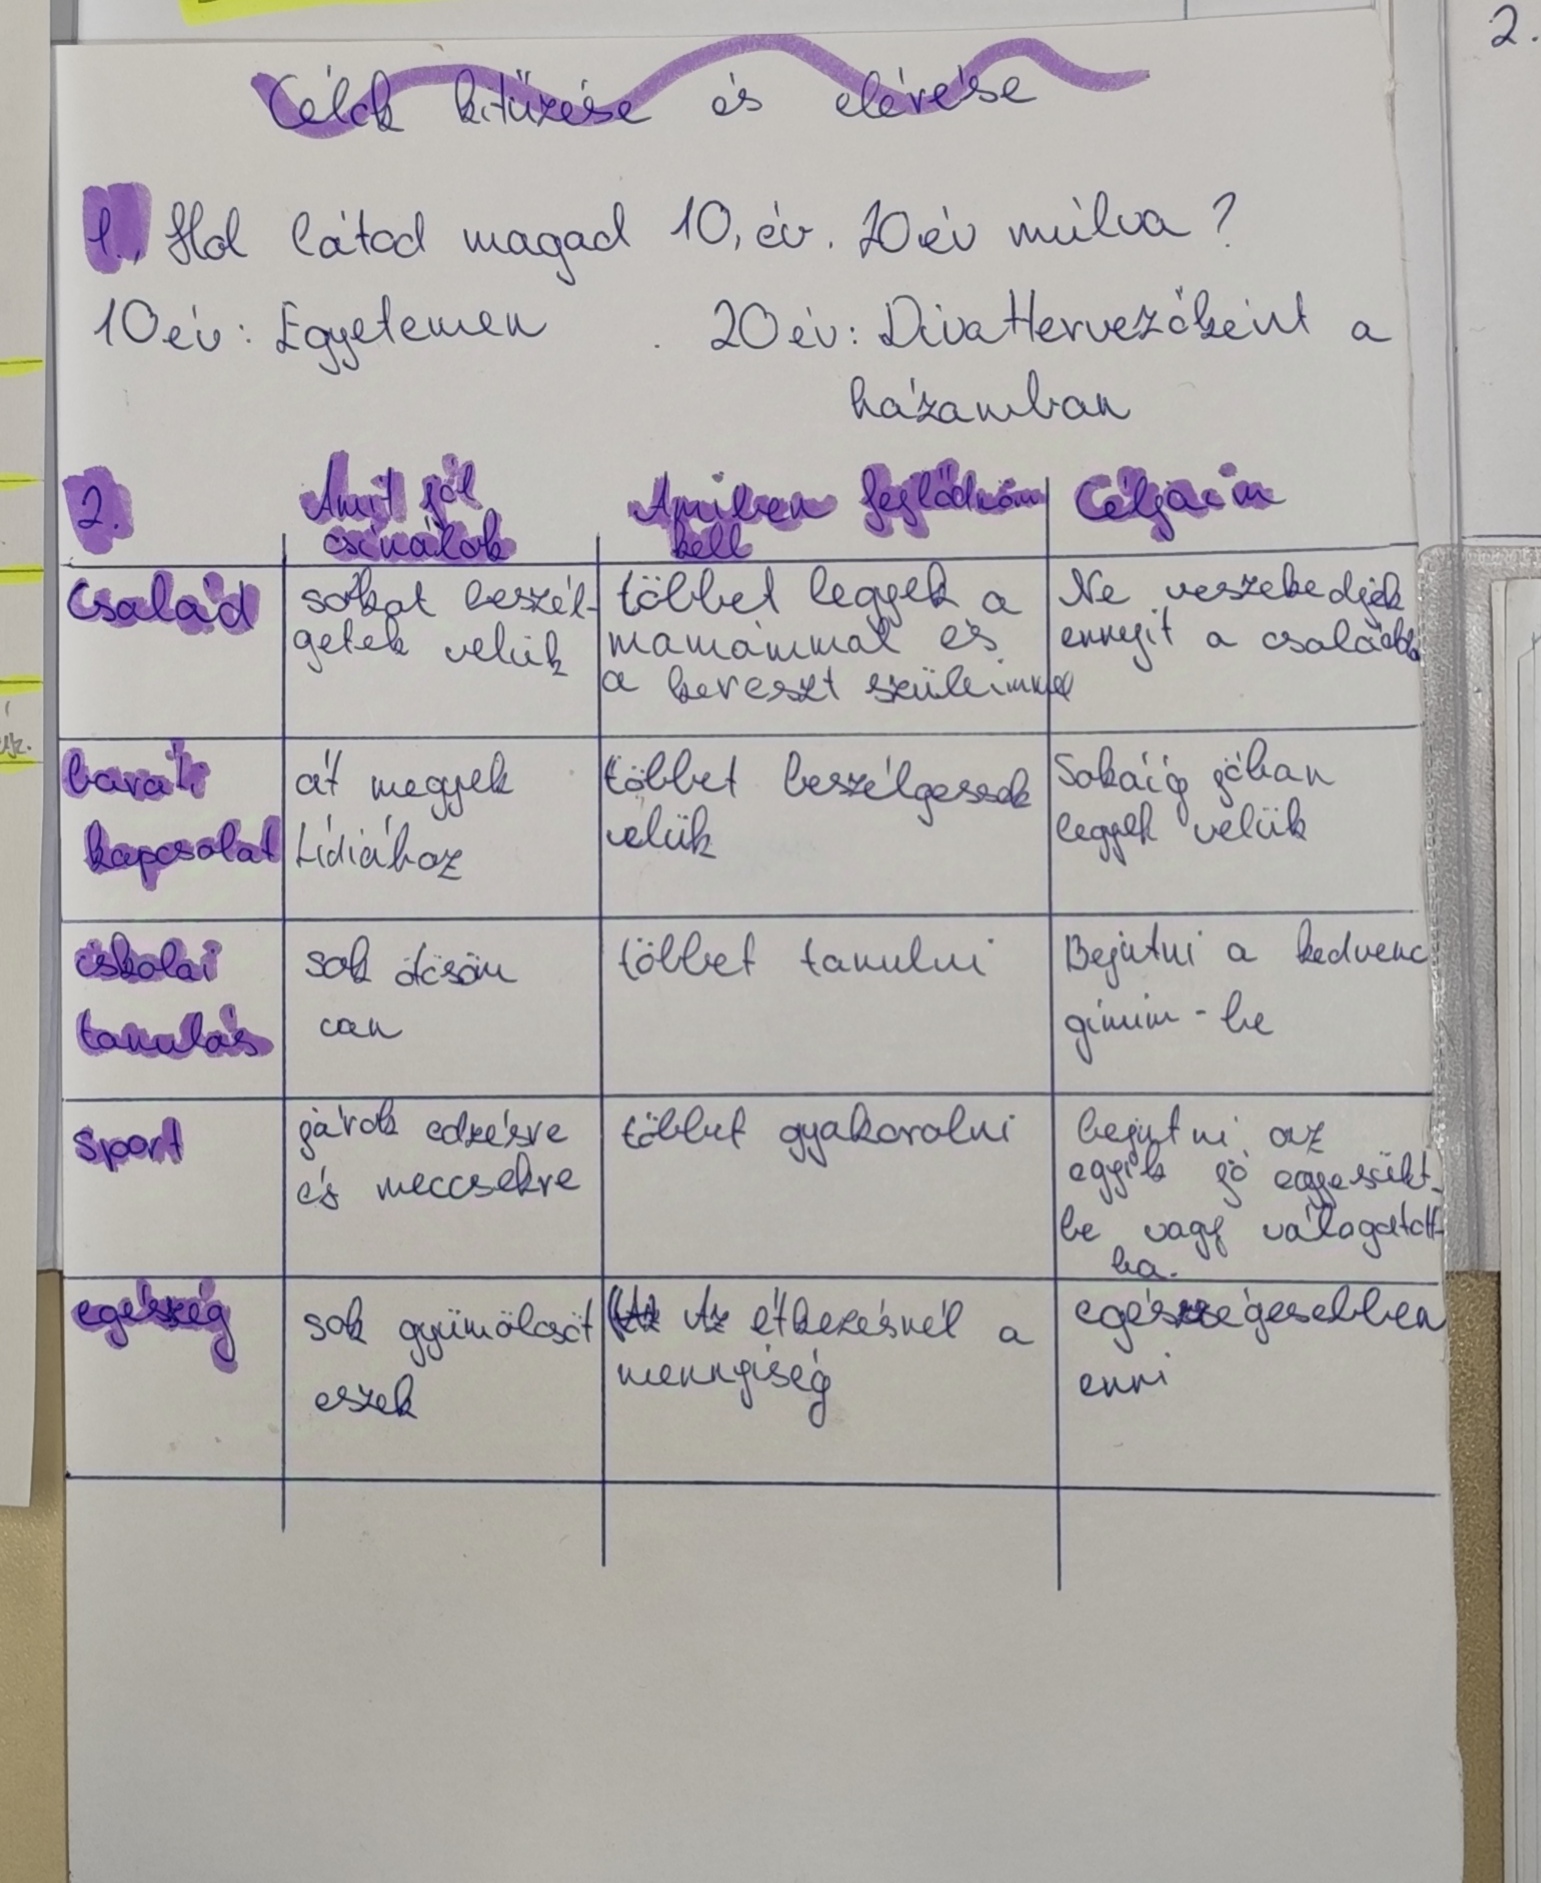 Célok kitűzése és elérése
1., Hol látod magad 10, év. 20 év múlva?
10 év: Egyetemen . 20 év: Divattervezőként a
házamban
2. Amit jól csinálok Amiben fejlődnöm kell Céljaim
Család
sokat beszél-
getek velük
többet legyek a
mamámmal és
a kereszt szüleimmel
Ne veszekedjek
ennyit a családba
baráti
kapcsolat
át megyek
Lídiához
többet beszélgessek
velük
Sokáig jóban
legyek velük
iskolai
tanulás
sok ötösöm
van
többet tanulni
Bejutni a kedvenc
gimim-be
sport
járok edzésre
és meccsekre
többet gyakorolni
bejutni az
egyik jó egyesület-
be vagy válogatott-
ba.
egészség
sok gyümölcsöt
eszek
Az étkezésnél a
mennyiség
egészségesebben
enni
2.